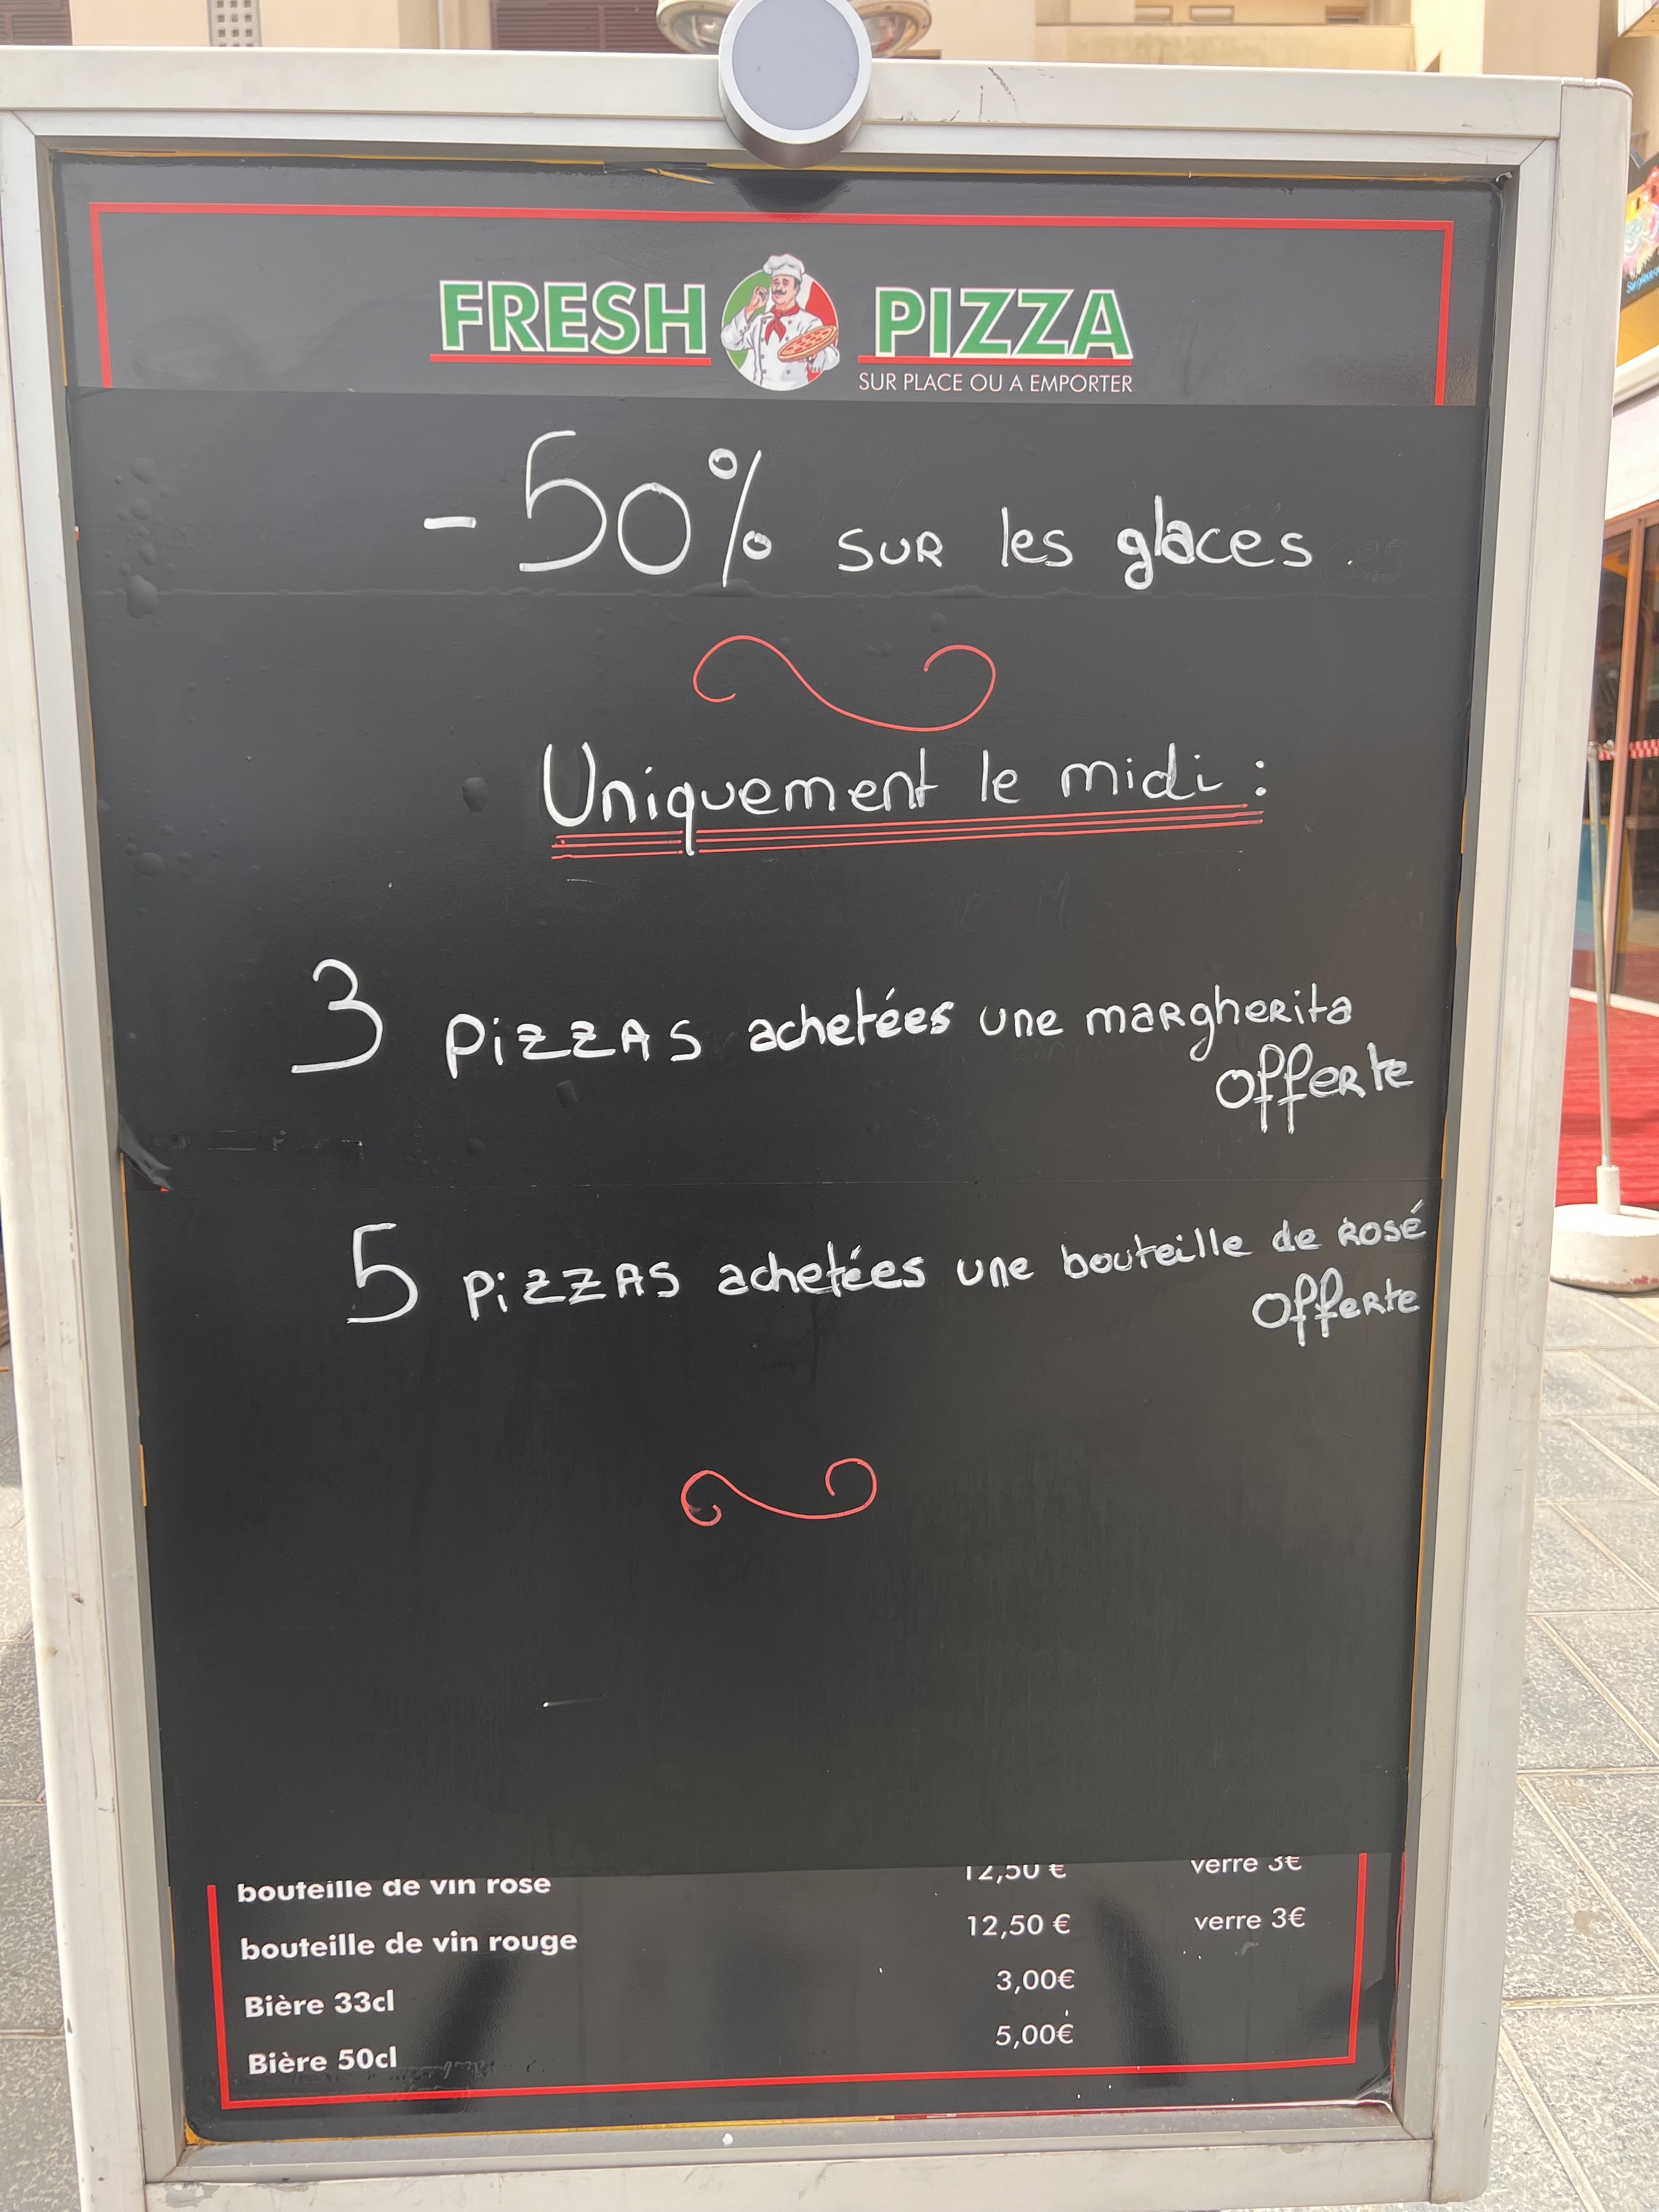 FRESH PIZZA
SUR PLACE OU A EMPORTER
-50% SUR les glaces.
Uniquement le midi :
3 PiZZAS achetées une margherita
offerte
5 PiZZAS achetées une bouteille de rosé
offerte
bouteille de vin rose 12,50 € verre 3€
bouteille de vin rouge 12,50 € verre 3€
Bière 33cl 3,00€
Bière 50cl 5,00€